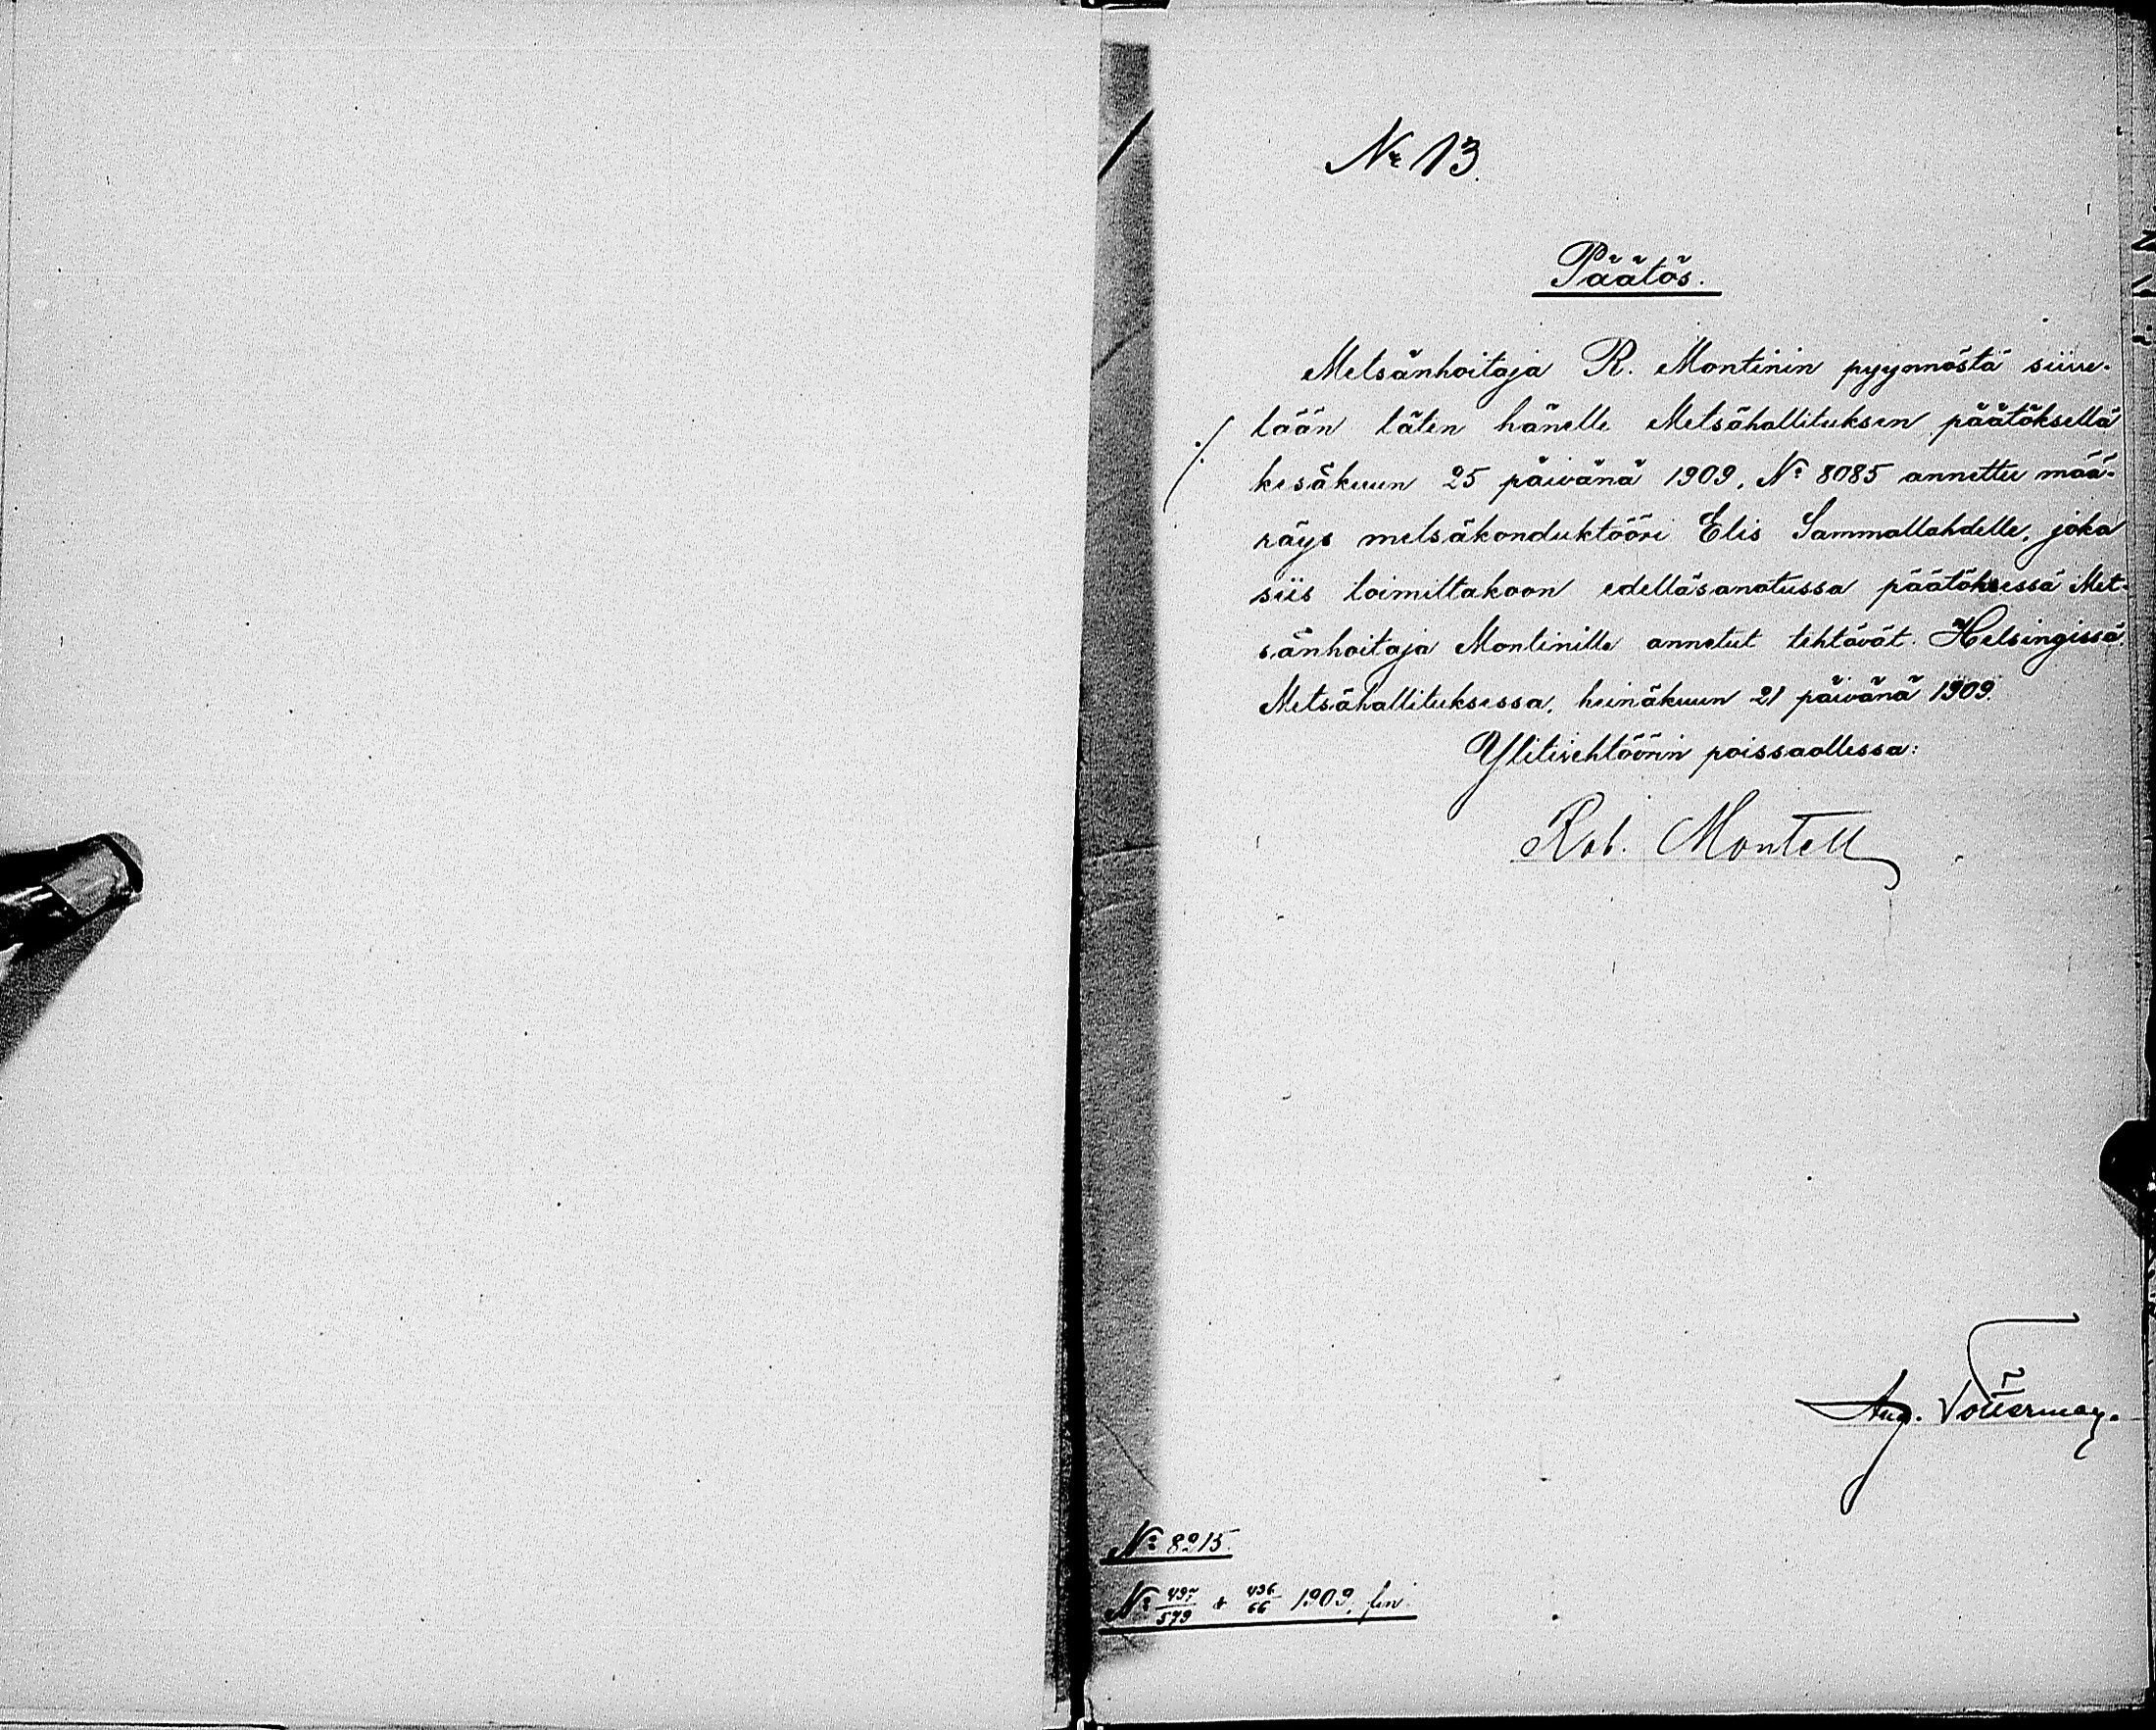 № 13.
Päätös.
Metsänhoitaja R. Montinin pyynnöstä siirre-
tään täten hänelle Metsähallituksen päätöksellä
kesäkuun 25 päivänä 1909, № 8085 annettu mää-
räys metsäkonduktööri Elis Sammallahdelle, joka
siis toimittakoon edelläsanotussa päätöksessä Met-
sänhoitaja Montinille annetut tehtävät. Helsingissä,
Metsähallituksessa, heinäkuun 21 päivänä 1909.
Ylitirehtöörin poissaollessa:
Rob. Montell
Aug.
№ 8215.
№ 497/579 & 436/66 1909, fin.